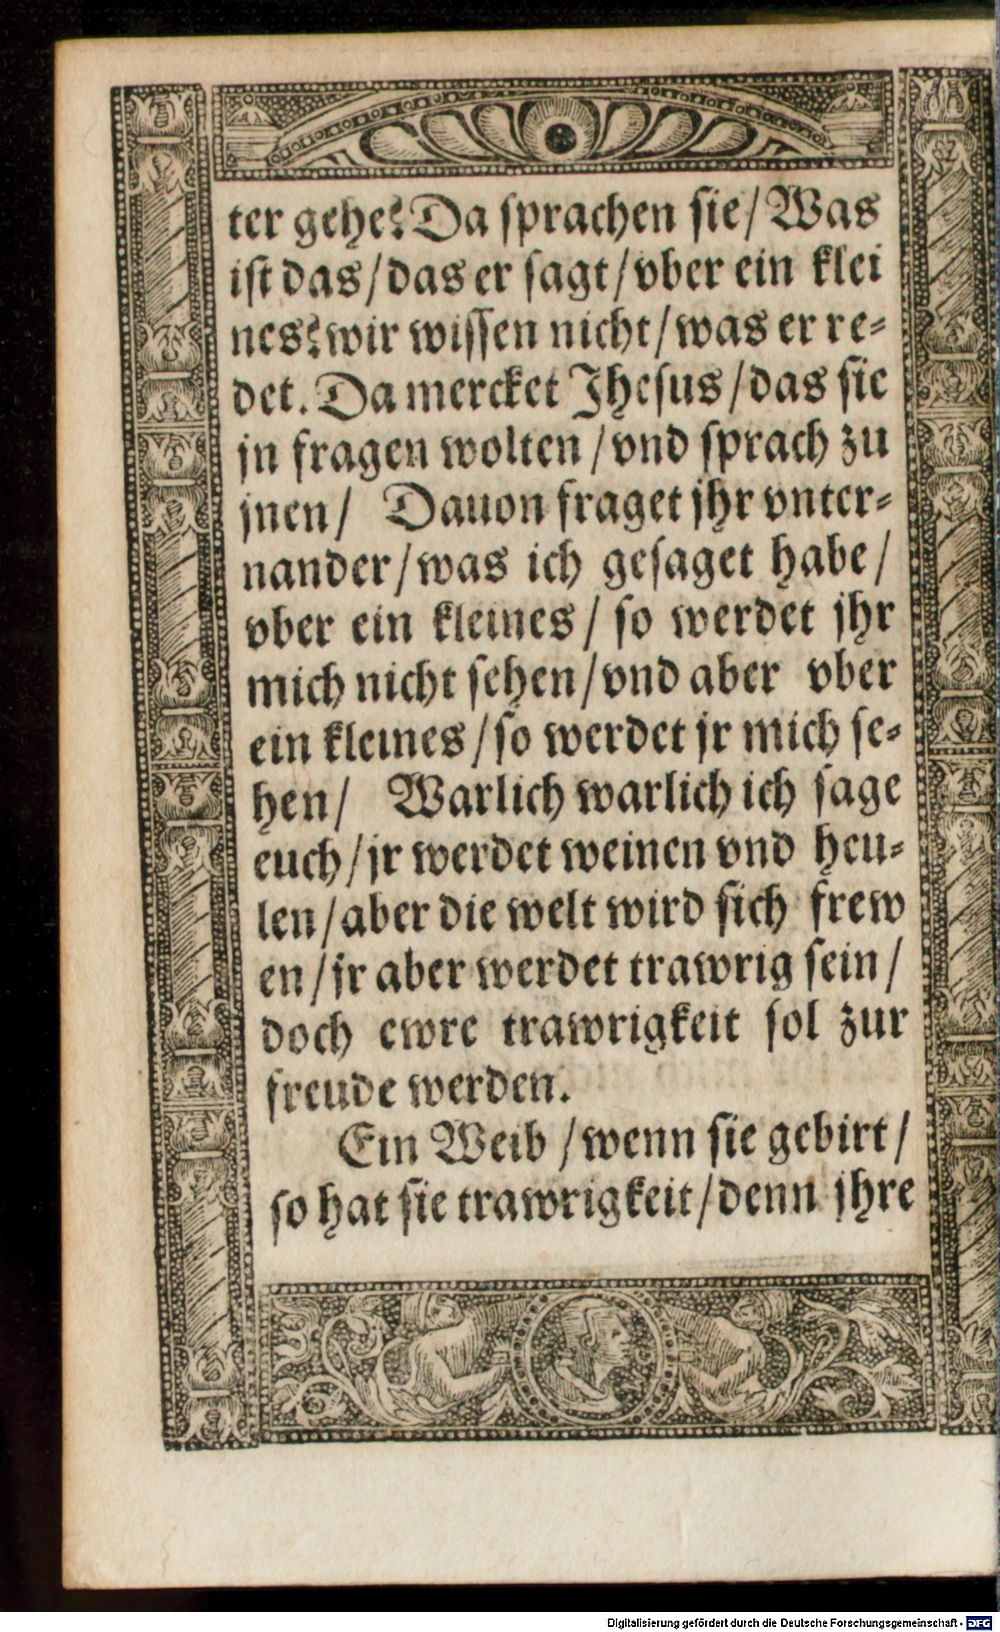 ter gehe? Da sprachen sie/ Was
ist das/ das er sagt/ vber ein klei
nes? wir wissen nicht/ was er re-
det. Da mercket Jhesus/ das sie
jn fragen wolten/ vnd sprach zu
jnen/ Dauon fraget jhr vnter-
nander/ was ich gesaget habe/
vber ein kleines/ so werdet jhr
mich nicht sehen/ vnd aber vber
ein kleines/ so werdet jr mich se-
hen/ Warlich warlich ich sage
euch/ jr werdet weinen vnd heu-
len/ aber die welt wird sich frew
en/ jr aber werdet trawrig sein/
doch ewre trawrigkeit sol zur
freude werden.
Ein Weib/ wenn sie gebirt/
so hat sie trawrigkeit/ denn jhre
Digitalisierung gefördert durch die Deutsche Forschungsgemeinschaft - DFG